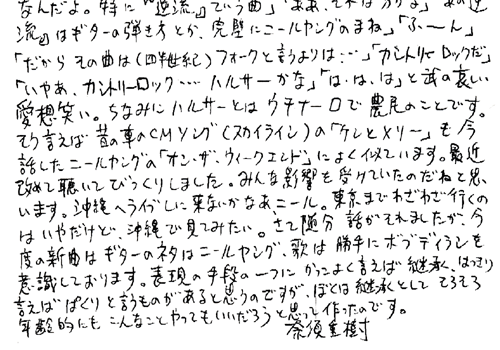 なんだよ。特に『逆流』という曲」「ああ、それは分かるよ」「あの逆
流』はギターの弾き方とか、完璧にニールヤングのまね」「ふ〜ん」
「だからその曲は(四半世紀)フォークと言うよりは…」「カントリーロックだ」
「いやあ、カントリーロック…ハルサーかな」「は・は・は」と誠の哀しい
愛想笑い。ちなみにハルサーとはウチナーロで農民のことです。
そう言えば昔の車のCMソング(スカイライン)の「ケンとメリー」も今
話したニールヤングの「オン・ザ・ウィークエンド」によく似ています。最近
改めて聴いてびっくりしました。みんな影響を受けていたのだねと思
います。沖縄へライブしに来ないかなあ、ニール。東京までわざわざ行くの
はいやだけど、沖縄で見てみたい。さて随分話がそれましたが、今
度の新曲はギターのネタはニールヤング、歌は勝手にボブディランを
意識しております。表現の手段の一つにかっこよく言えば継承、はっきり
言えばぱくりと言うものがあると思うのですが、ぼくは継承としてそろそろ
年齢的にもこんなことやってもいいだろうと思って作ったのです。
奈須重樹